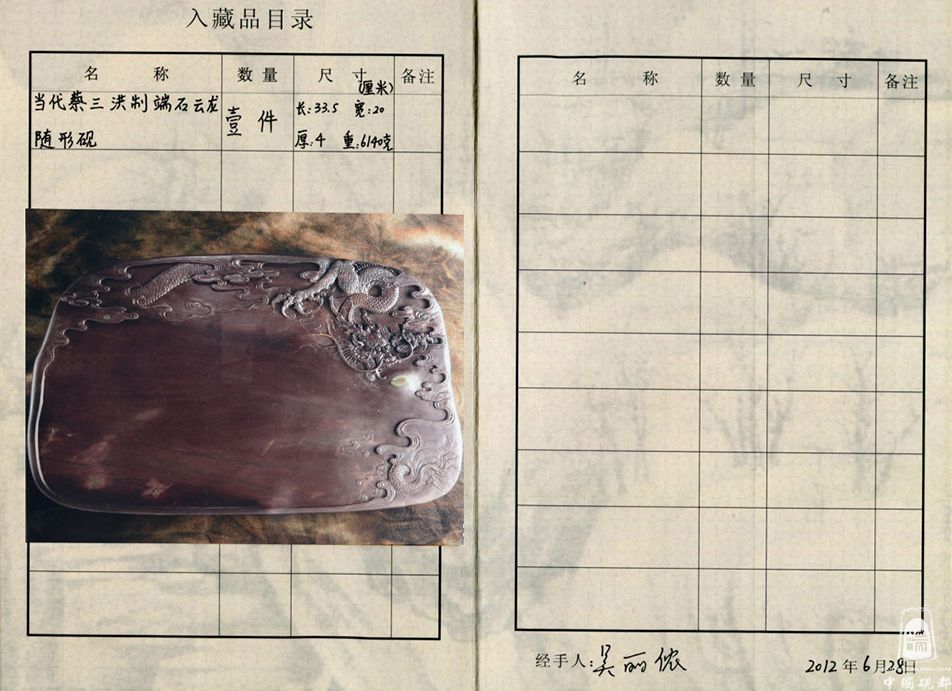 入藏品目录
名 称 数量 尺寸(厘米) 备注
当代蔡三洪制端石云龙 壹件 长:33.5 宽:20
随形砚 厚:4 重:6140克
名 称 数量 尺寸 备注
经手人:吴丽侬
2012年6月28日
中国砚都